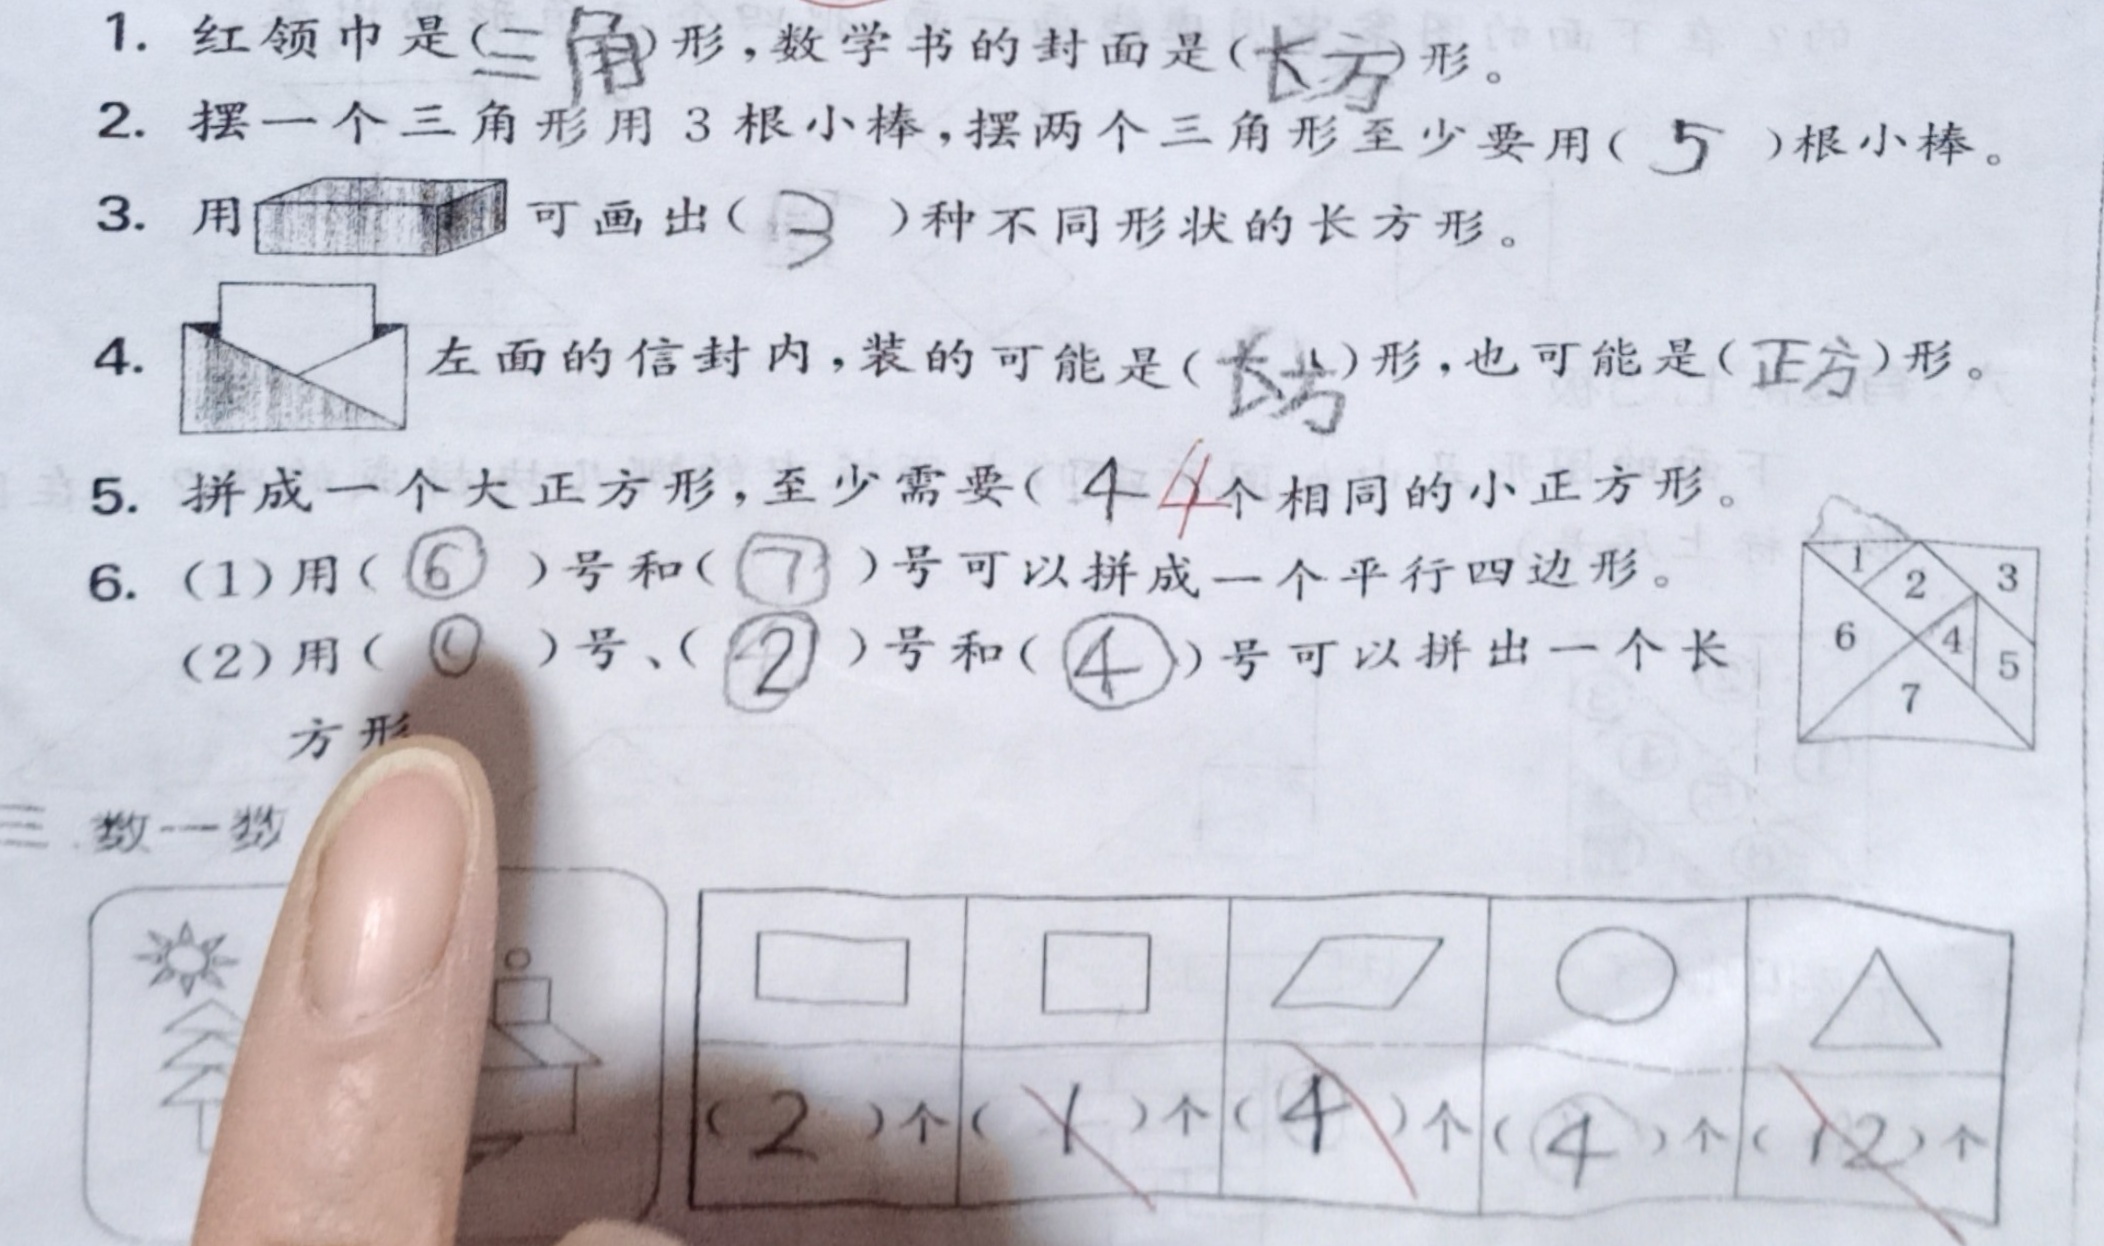 1. 红领巾是(三角)形,数学书的封面是(长方)形。
2. 摆一个三角形用3根小棒,摆两个三角形至少要用(5)根小棒。
3. 用可画出(3)种不同形状的长方形。
4. 左面的信封内,装的可能是(长方)形,也可能是(正方)形。
5. 拼成一个大正方形,至少需要(4 4)个相同的小正方形。
6. (1)用(⑥)号和(⑦)号可以拼成一个平行四边形。
1 2 3
(2)用(①)号、(②)号和(④)号可以拼出一个长
6 4 5
7
方形
三 数一数
(2)个 (1)个 (4)个 (4)个 (12)个